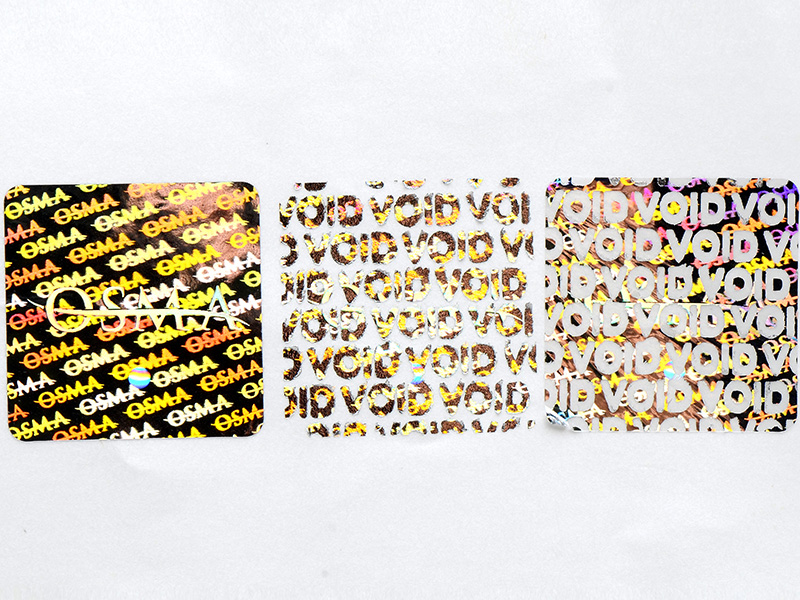 OSMA OSMA OSMA
OSMA OSMA OSMA OSMA
OSMA OSMA OSMA OSMA
OSMA OSMA OSMA OSMA
OSMA
OSMA OSMA OSMA OSMA
OSMA OSMA OSMA OSMA
OSMA OSMA OSMA OSMA
VOID VOID VOI
VOID VOID
VOID VOID
VOID VOID VOID
VOID VOID
VOID VOID
VOID VOID VOI
VOID VOID
VOID VOID
VOID VOID VOI
VOID VOID
VOID VOID